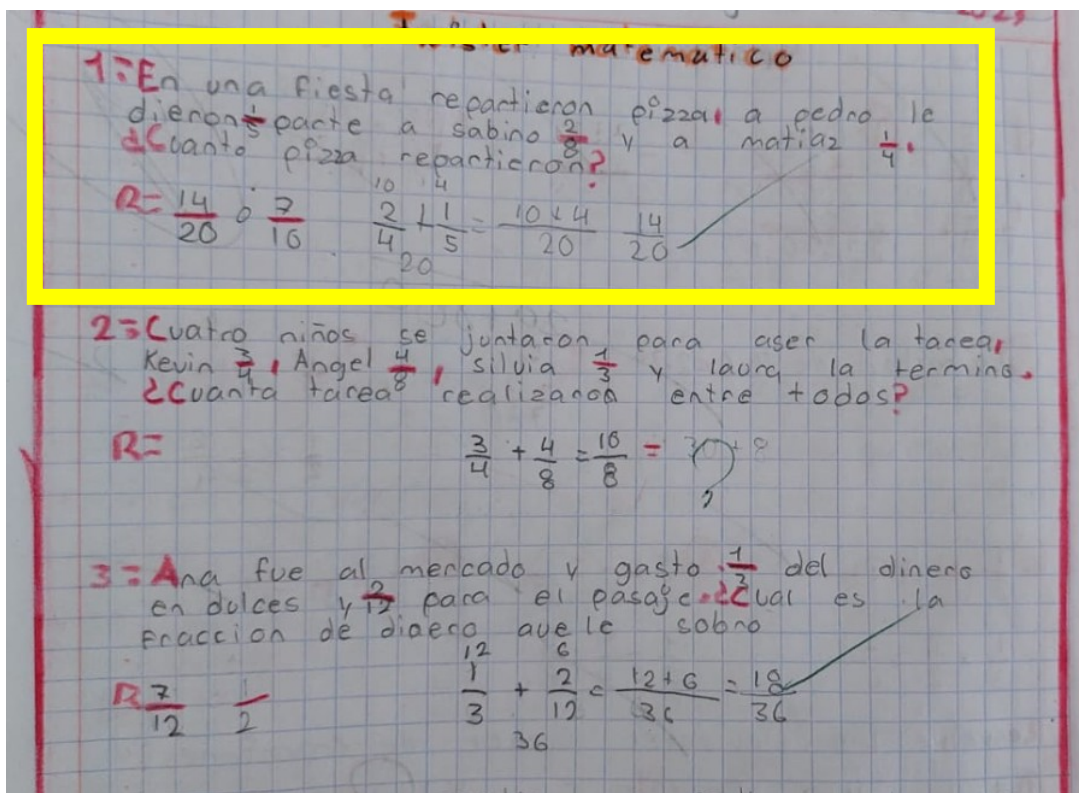 matematico
1=En una fiesta repartieron pizza, a pedro le
dieron 1/5 parte a sabino 2/8 y a matiaz 1/4.
¿Cuanto pizza repartieron?
R= 14/20 o 7/10
10 4
2/4 + 1/5 = 10+4/20 14/20
20
2=Cuatro niños se juntaron para aser la tarea,
Kevin 3/4, Angel 4/8, silvia 1/3 y laura la termino.
¿Cuanta tarea realizaron entre todos?
R=
3/4 + 4/8 = 10/8 =
3=Ana fue al mercado y gasto 1/3 del dinero
en dulces y 2/12 para el pasaje.¿Cual es la
fraccion de dinero que le sobro
12 6
R 7/12 1/2
1/3 + 2/12 = 12+6/36 = 18/36
36